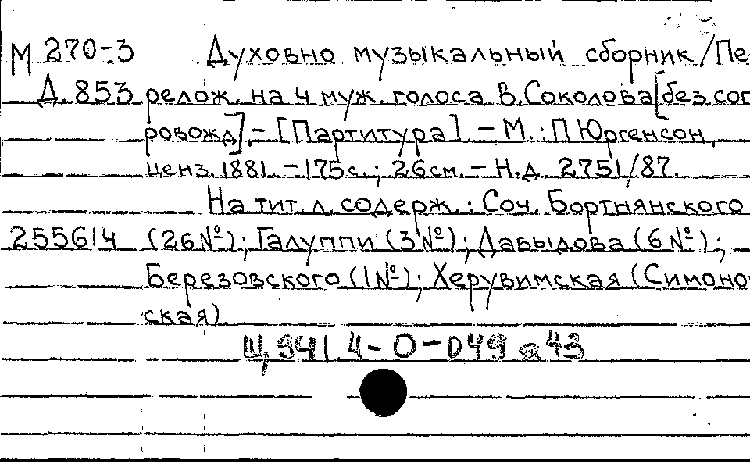 М 270-3 Духовно музыкальный сборник/Пе
Д.853 релож. на 4 муж. голоса В. Соколова [без соп
ровожд]. - [Партитура]. - М.: П. Юргенсон,
ценз. 1881. - 175с.; 26см. - Н.д. 2751/87.
На тит. л. содерж.: Соч. Бортнянского
255614 (26№); Галуппи (3№); Давыдова (6№);
Березовского (1№); Херувимская (Симонов
ская)
Щ 941.4-0-049 я43